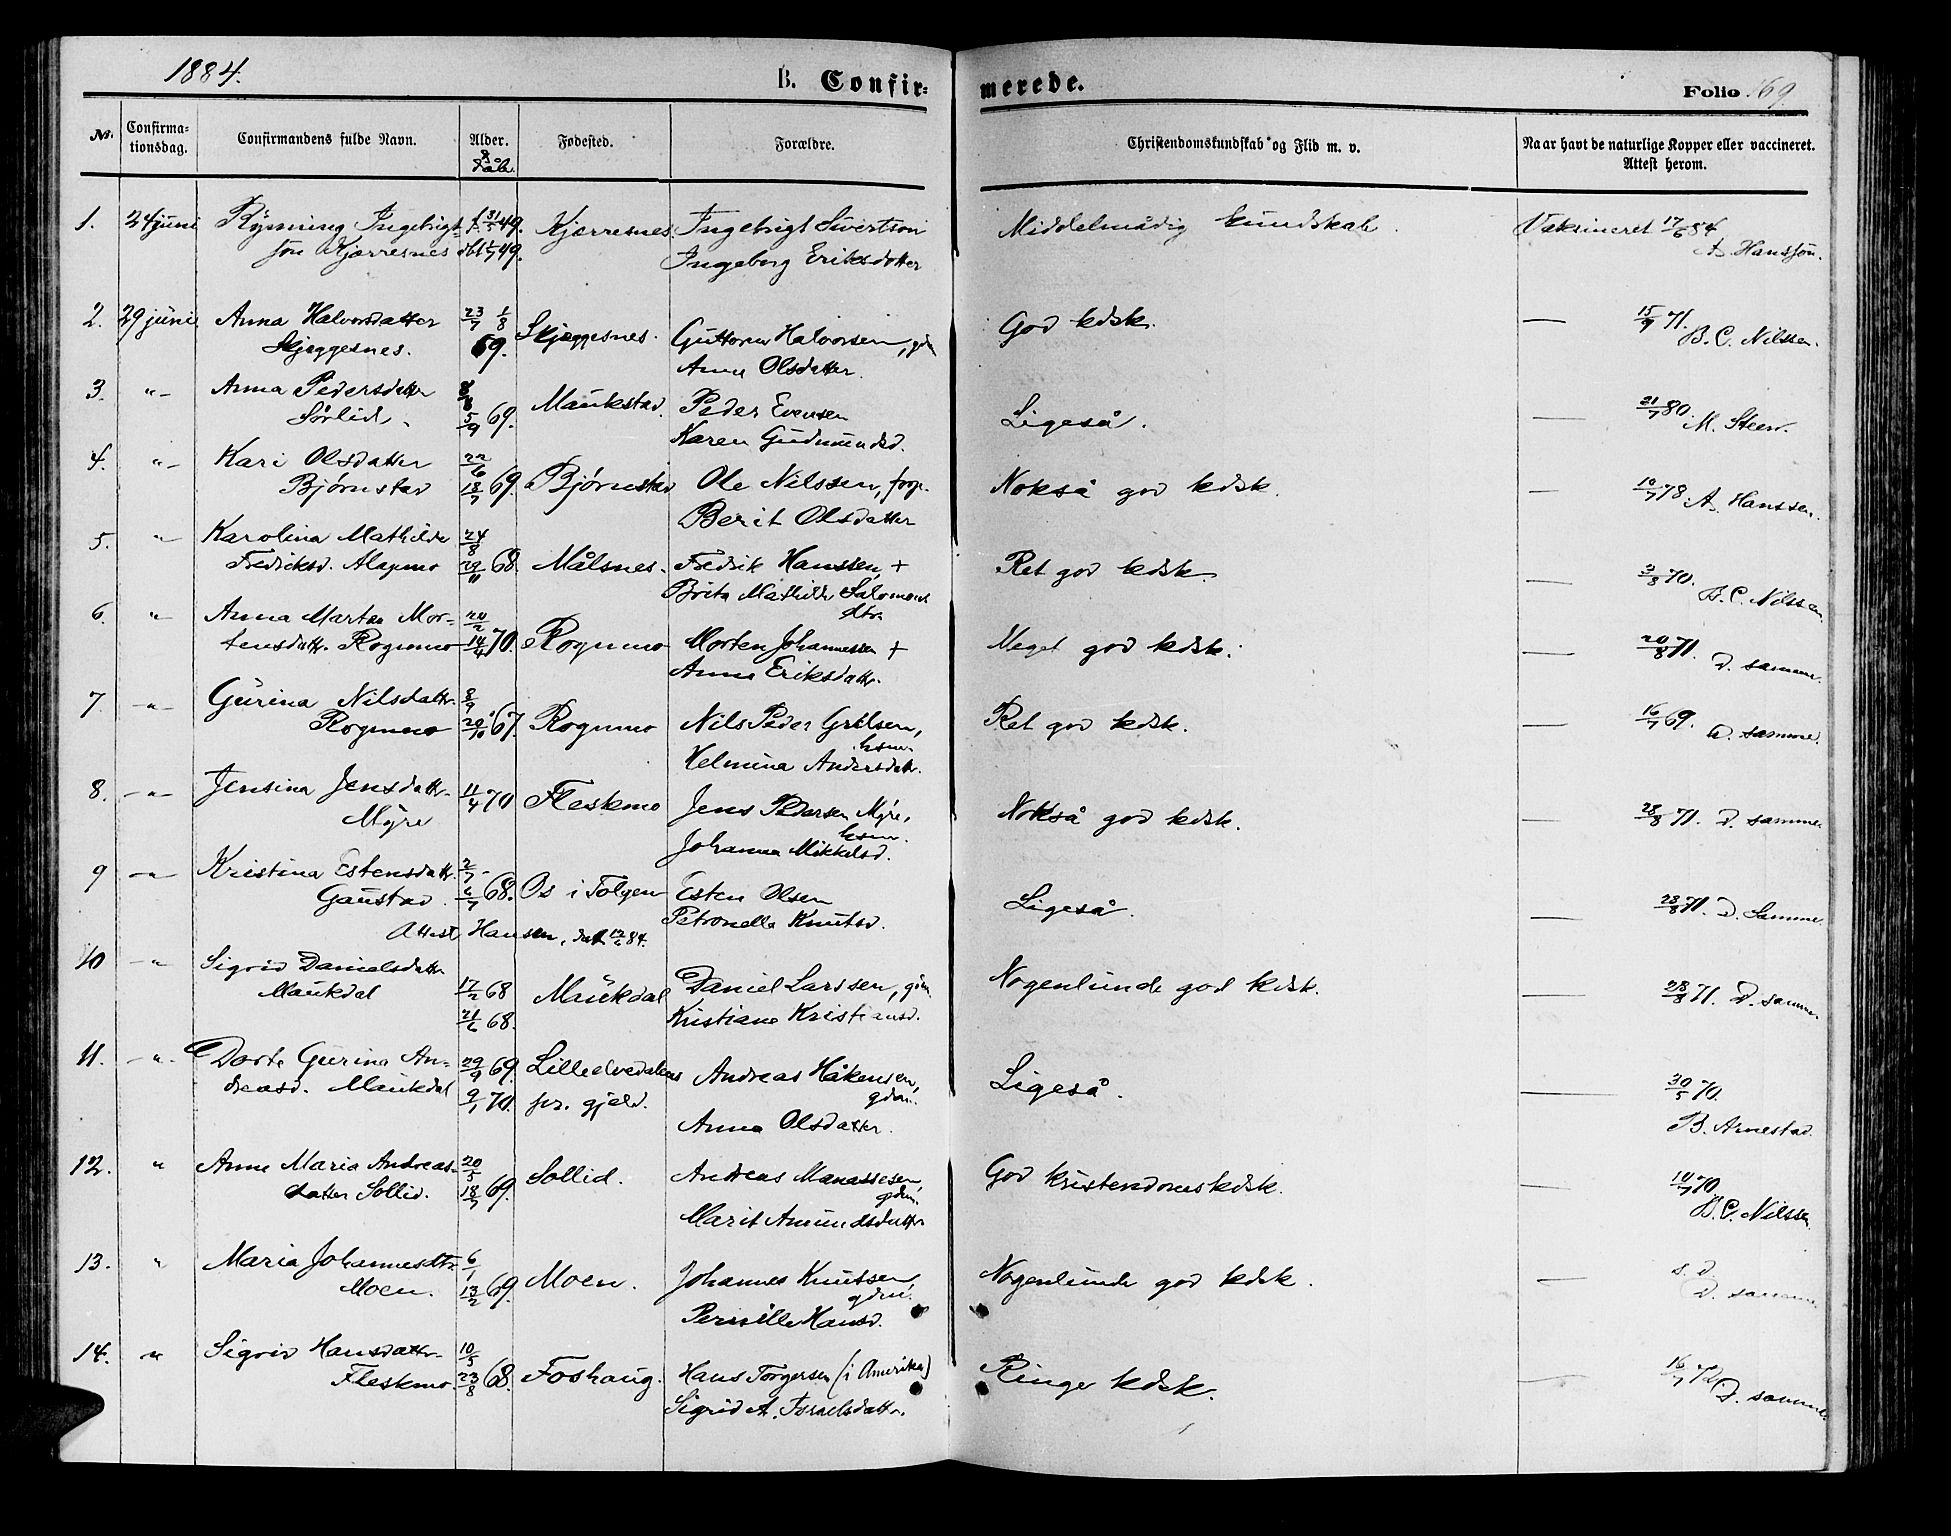 1884.
B. Confir-
merede.
Folio 169
No.
Confirma-
tionsdag.
Confirmandens fulde Navn.
Alder.
Dåb.
Fødested.
Forældre.
Christendomskundskab og Flid m. v.
Naar havt de naturlige Kopper eller vaccineret.
Attest herom.
1. 24 juni Rynning Ingebrigt- f. 31/5 49. Kjærresnes. Ingebrigt Sivertson Middelmådig kundskab. Vaksineret 17/6 84
søn Kjærresnes dbt 1/7 49. Ingeborg Eriksdatter A. Hanssøn.
2. 29 juni Anna Halvorsdatter 23/7 1/8 Skjæggesnes. Guttorm Halvorsen, gdm God kdsk. — 15/9 71.
Skjæggesnes. 69. Anna Olsdatter. B. C. Nilssen.
3. "- Anna Pedersdatter 8/8 Maukstad. Peder Evensen Ligeså. — 21/7 80.
Sørlid. 5/9 69. Karen Gudmundsd. M. Steen.
4. "- Kari Olsdatter 22/6 Bjørnstad Ole Nilssen, forp. Nokså god kdsk. — 10/7 78.
Bjørnstad 18/7 69. Berit Olsdatter A. Hanssen.
5. "- Karolina Mathilde 24/8 Målsnes. Fredrik Hanssen, + Ret god kdsk. — 3/8 70.
Fredriksd. Alapmo 29/11 68. Brita Mathilde Salomons dtr. B. C. Nilssen
6. "- Anna Martea Mor- 20/2 Rognmo Morten Johannessen + Meget god kdsk. — 20/8 71.
tensdatter Rognmo 14/4 70. Anna Eriksdattr. D. samme.
7. -"- Gurina Nilsdattr. 8/9 Rognmo Nils Peder Grilsen, Ret god kdsk. — 16/7 69.
Rognmo 20/10 67. hsm. Helmina Andersdattr. D. samme.
8. -"- Jensina Jensdattr. 11/4 70 Fleskmo Jens Pedersen Myre, Nokså god kdsk. — 28/8 71. D. samme
Myre hsm. Johanna Mikkelsd.
9 -"- Kristina Estensdattr. 2/7 Os i Tolgen Esten Olsen Ligeså. — 28/8 71. D. Samme.
Gaustad. 6/7 68. Petronella Knutsd.
Attest Hansen, dat 12/6 84.
10 -"- Sigrid Danielsdattr 17/2 68 Maukdal Daniel Larssen, gdm. Nogenlunde god kdsk. — 28/8 71. D. samme
Maukdal 21/6 68. Kristiane Kristiansd.
11. -"- Dorte Gurina An- 29/9 69. Lilleelvedalens Andreas Håkensen, Ligeså. — 30/5 70.
dreasd. Maukdal 9/1 70. pr. gjeld. gdm. Anna Olsdatter. B. Arnestad.
12. " Anne Maria Andreas- 20/5 Sollid. Andreas Manassesen, God kristendomskdsk. — 10/7 70.
datter Sollid. 18/7 69. gdm. Marit Amundsdattr B. C. Nilssen
13. " Maria Johannesdtr 6/1 Moen. Johannes Knutsen, Nogenlunde god kdsk. — s. d.
Moen. 13/2 69. gdm. Pernille Hansd. D. samme
14. " Sigrid Hansdattr. 10/5 Foshaug. Hans Torgersen (i Amerika) Ringe kdsk. — 16/7 72.
Fleskmo 23/8 68. Sigrid A. Israelsdattr. D. samme.